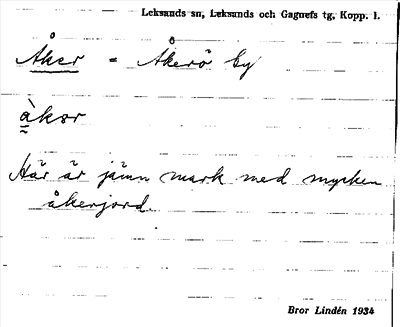 Leksands sn, Leksands och Gagnefs tg, Kopp. l.
Åker = Åkerö by
àkər
Här är jämn mark med mycken
åkerjord.
Bror Lindén 1934